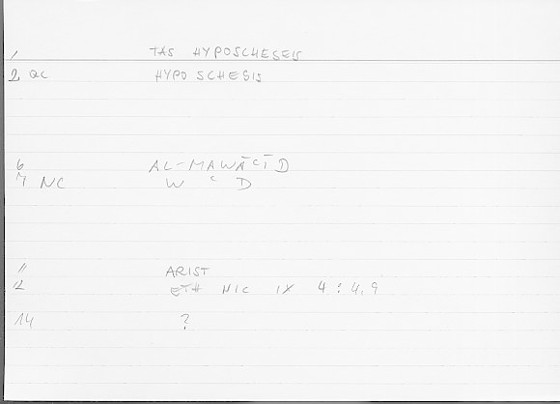 1 TAS HYPOSCHESEIS
2 QC HYPOSCHESIS
6 AL-MAWĀʿĪD
7 NC W ʿ D
11 ARIST
12 ETH NIC IX 4 : 4,9
14 ?